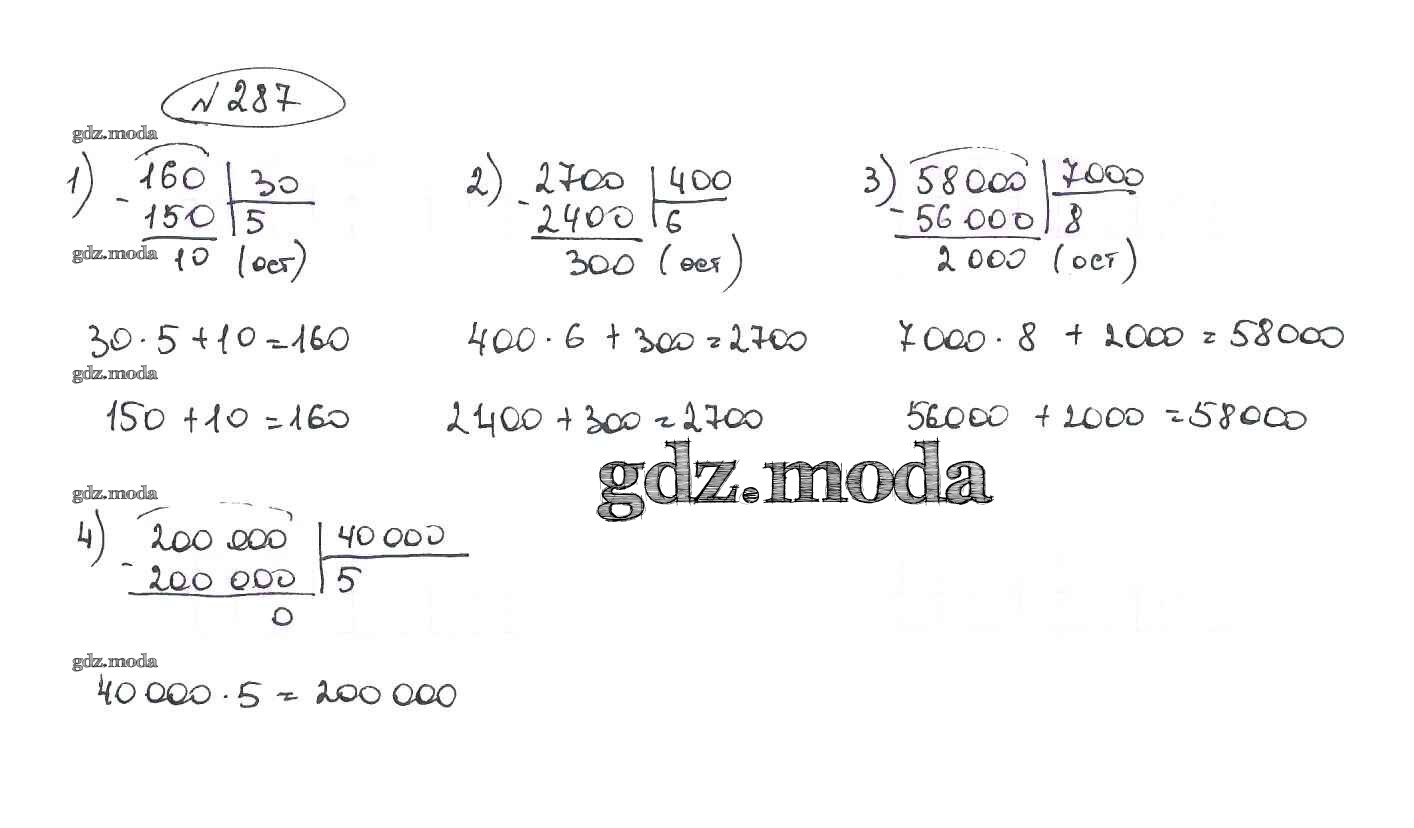 № 287
gdz.moda
1) 160 | 30
- 150 | 5
gdz.moda
10 (ост)
2) 2700 | 400
- 2400 | 6
300 (ост)
3) 58000 | 7000
- 56 000 | 8
2 000 (ост)
30 · 5 + 10 = 160
400 · 6 + 300 = 2700
7000 · 8 + 2000 = 58000
gdz.moda
150 + 10 = 160
2400 + 300 = 2700
56000 + 2000 = 58000
gdz.moda
gdz.moda
4) 200 000 | 40 000
- 200 000 | 5
0
gdz.moda
40 000 · 5 = 200 000